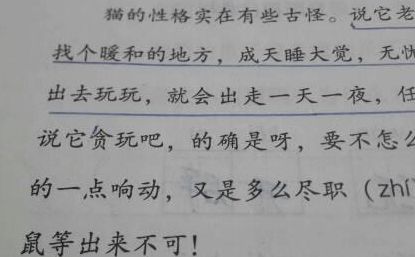 猫的性格实在有些古怪。说它老
找个暖和的地方，成天睡大觉，无忧
出去玩玩，就会出走一天一夜，任
说它贪玩吧，的确是呀，要不怎么
的一点响动，又是多么尽职（zhí
鼠等出来不可！